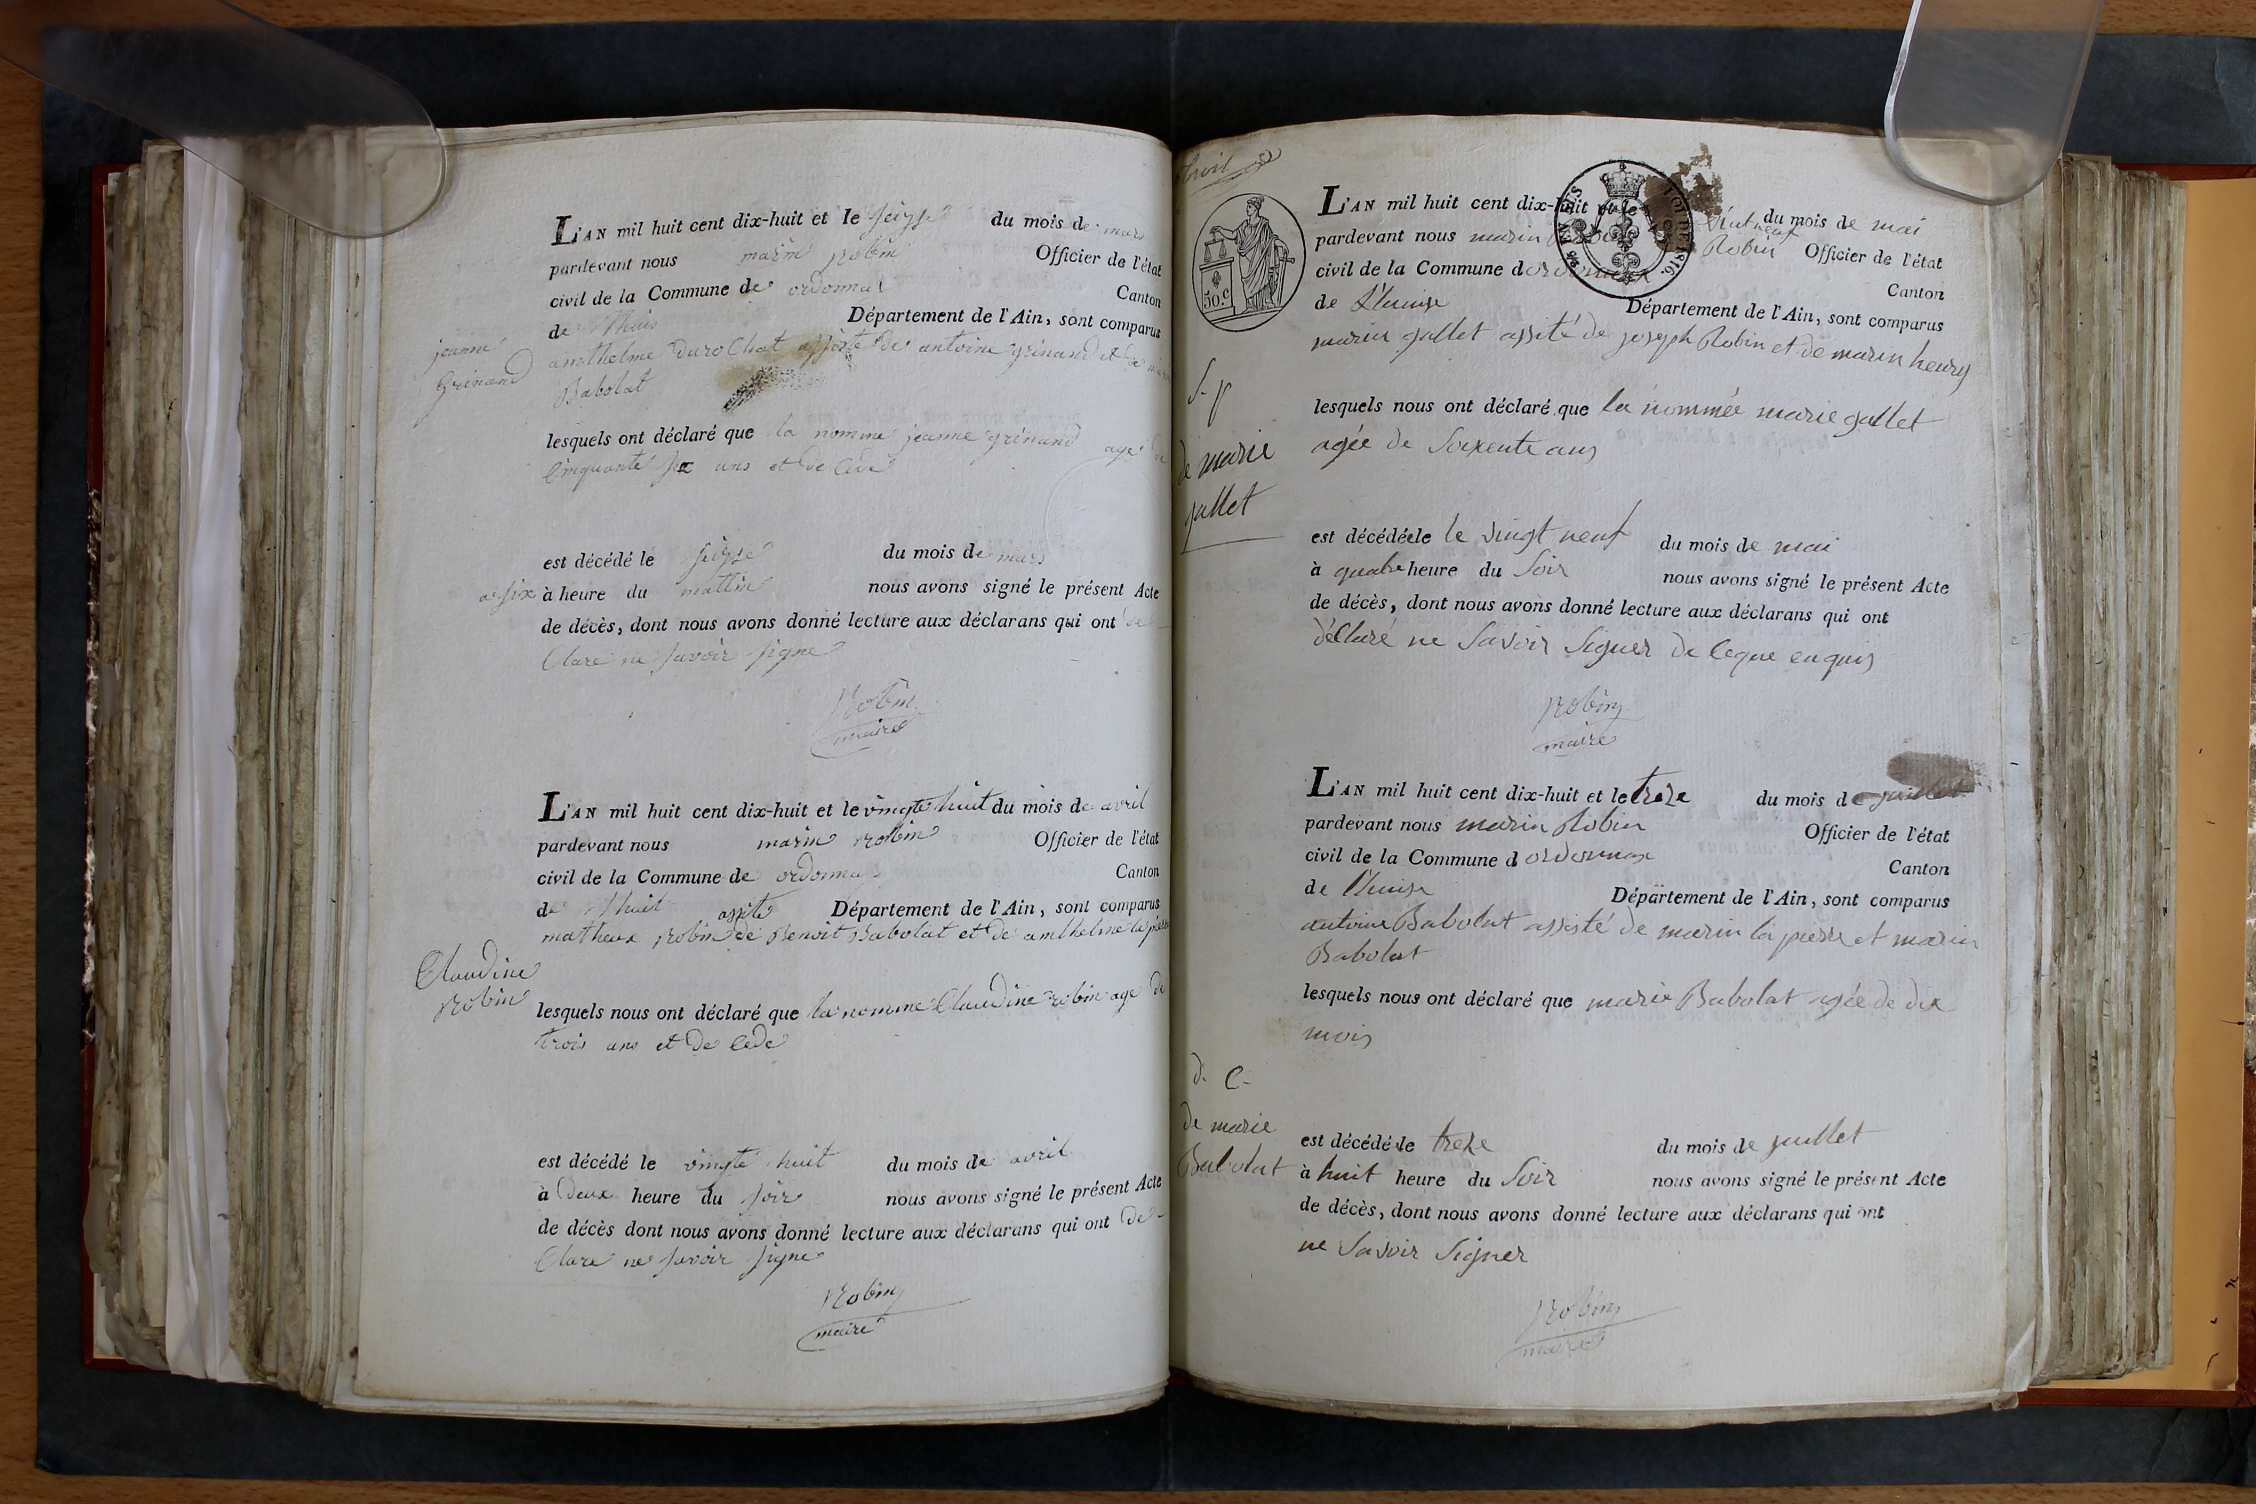 jeanne
Grinand
L'AN mil huit cent dix-huit et le seizse du mois de mars
pardevant nous marin robin Officier de l'état
civil de la Commune de ordonnat Canton
de Département de l'Ain, sont comparus
anthelme Durochat assisté de antoine grinand et de
Babolat
lesquels ont déclaré que la nomme jeanne grinand age de
Cinquante six ans et de Cede
est décédé le seizse du mois de mars
a six à heure du mattin nous avons signé le présent Acte
de décès, dont nous avons donné lecture aux déclarans qui ont de
Clare ne savoir signe
Robin
maire
Claudine
Robin
L'AN mil huit cent dix-huit et le vingte huit du mois de avril
pardevant nous marin robin Officier de l'état
civil de la Commune de ordonna Canton
de l'huit assité Département de l'Ain, sont comparus
matheux robin de Benoit Babolat et de anthelme lapierre
lesquels nous ont déclaré que la nomme Claudine robin age de
trois ans et de Cede
est décédé le vingte huit du mois de avril
à Deux heure du soir nous avons signé le présent Acte
de décès dont nous avons donné lecture aux déclarans qui ont de
Clare ne savoir signe
Robin
maire
50.c
EN SUS
LOI DE 1816.
L'AN mil huit cent dix-huit et le vint neuf du mois de mai
pardevant nous marin Robin Officier de l'état
civil de la Commune d Canton
de L'huise Département de l'Ain, sont comparus
marin gallet assité de joseph Robin et de marin heury
de marie
gallet
lesquels nous ont déclaré que la nommée marie gallet
agée de Soixente ans
est décédéele le vingt neuf du mois de mai
à quatre heure du Soir nous avons signé le présent Acte
de décès, dont nous avons donné lecture aux déclarans qui ont
déClaré ne Savoir Signer de Ceque enquis
Robin
maire
L'AN mil huit cent dix-huit et le treze du mois de juillet
pardevant nous marin Robin Officier de l'état
civil de la Commune d ordonnax Canton
de l'huise Département de l'Ain, sont comparus
antoine Babolat assisté de marin la pierre et marin
Babolat
lesquels nous ont déclaré que marie Babolat agée de dix
mois
d. C.
de marie
Babolat
est décédé le treze du mois de juillet
à huit heure du Soir nous avons signé le présent Acte
de décès, dont nous avons donné lecture aux déclarans qui ont
ne Savoir Signer
Robin
maire